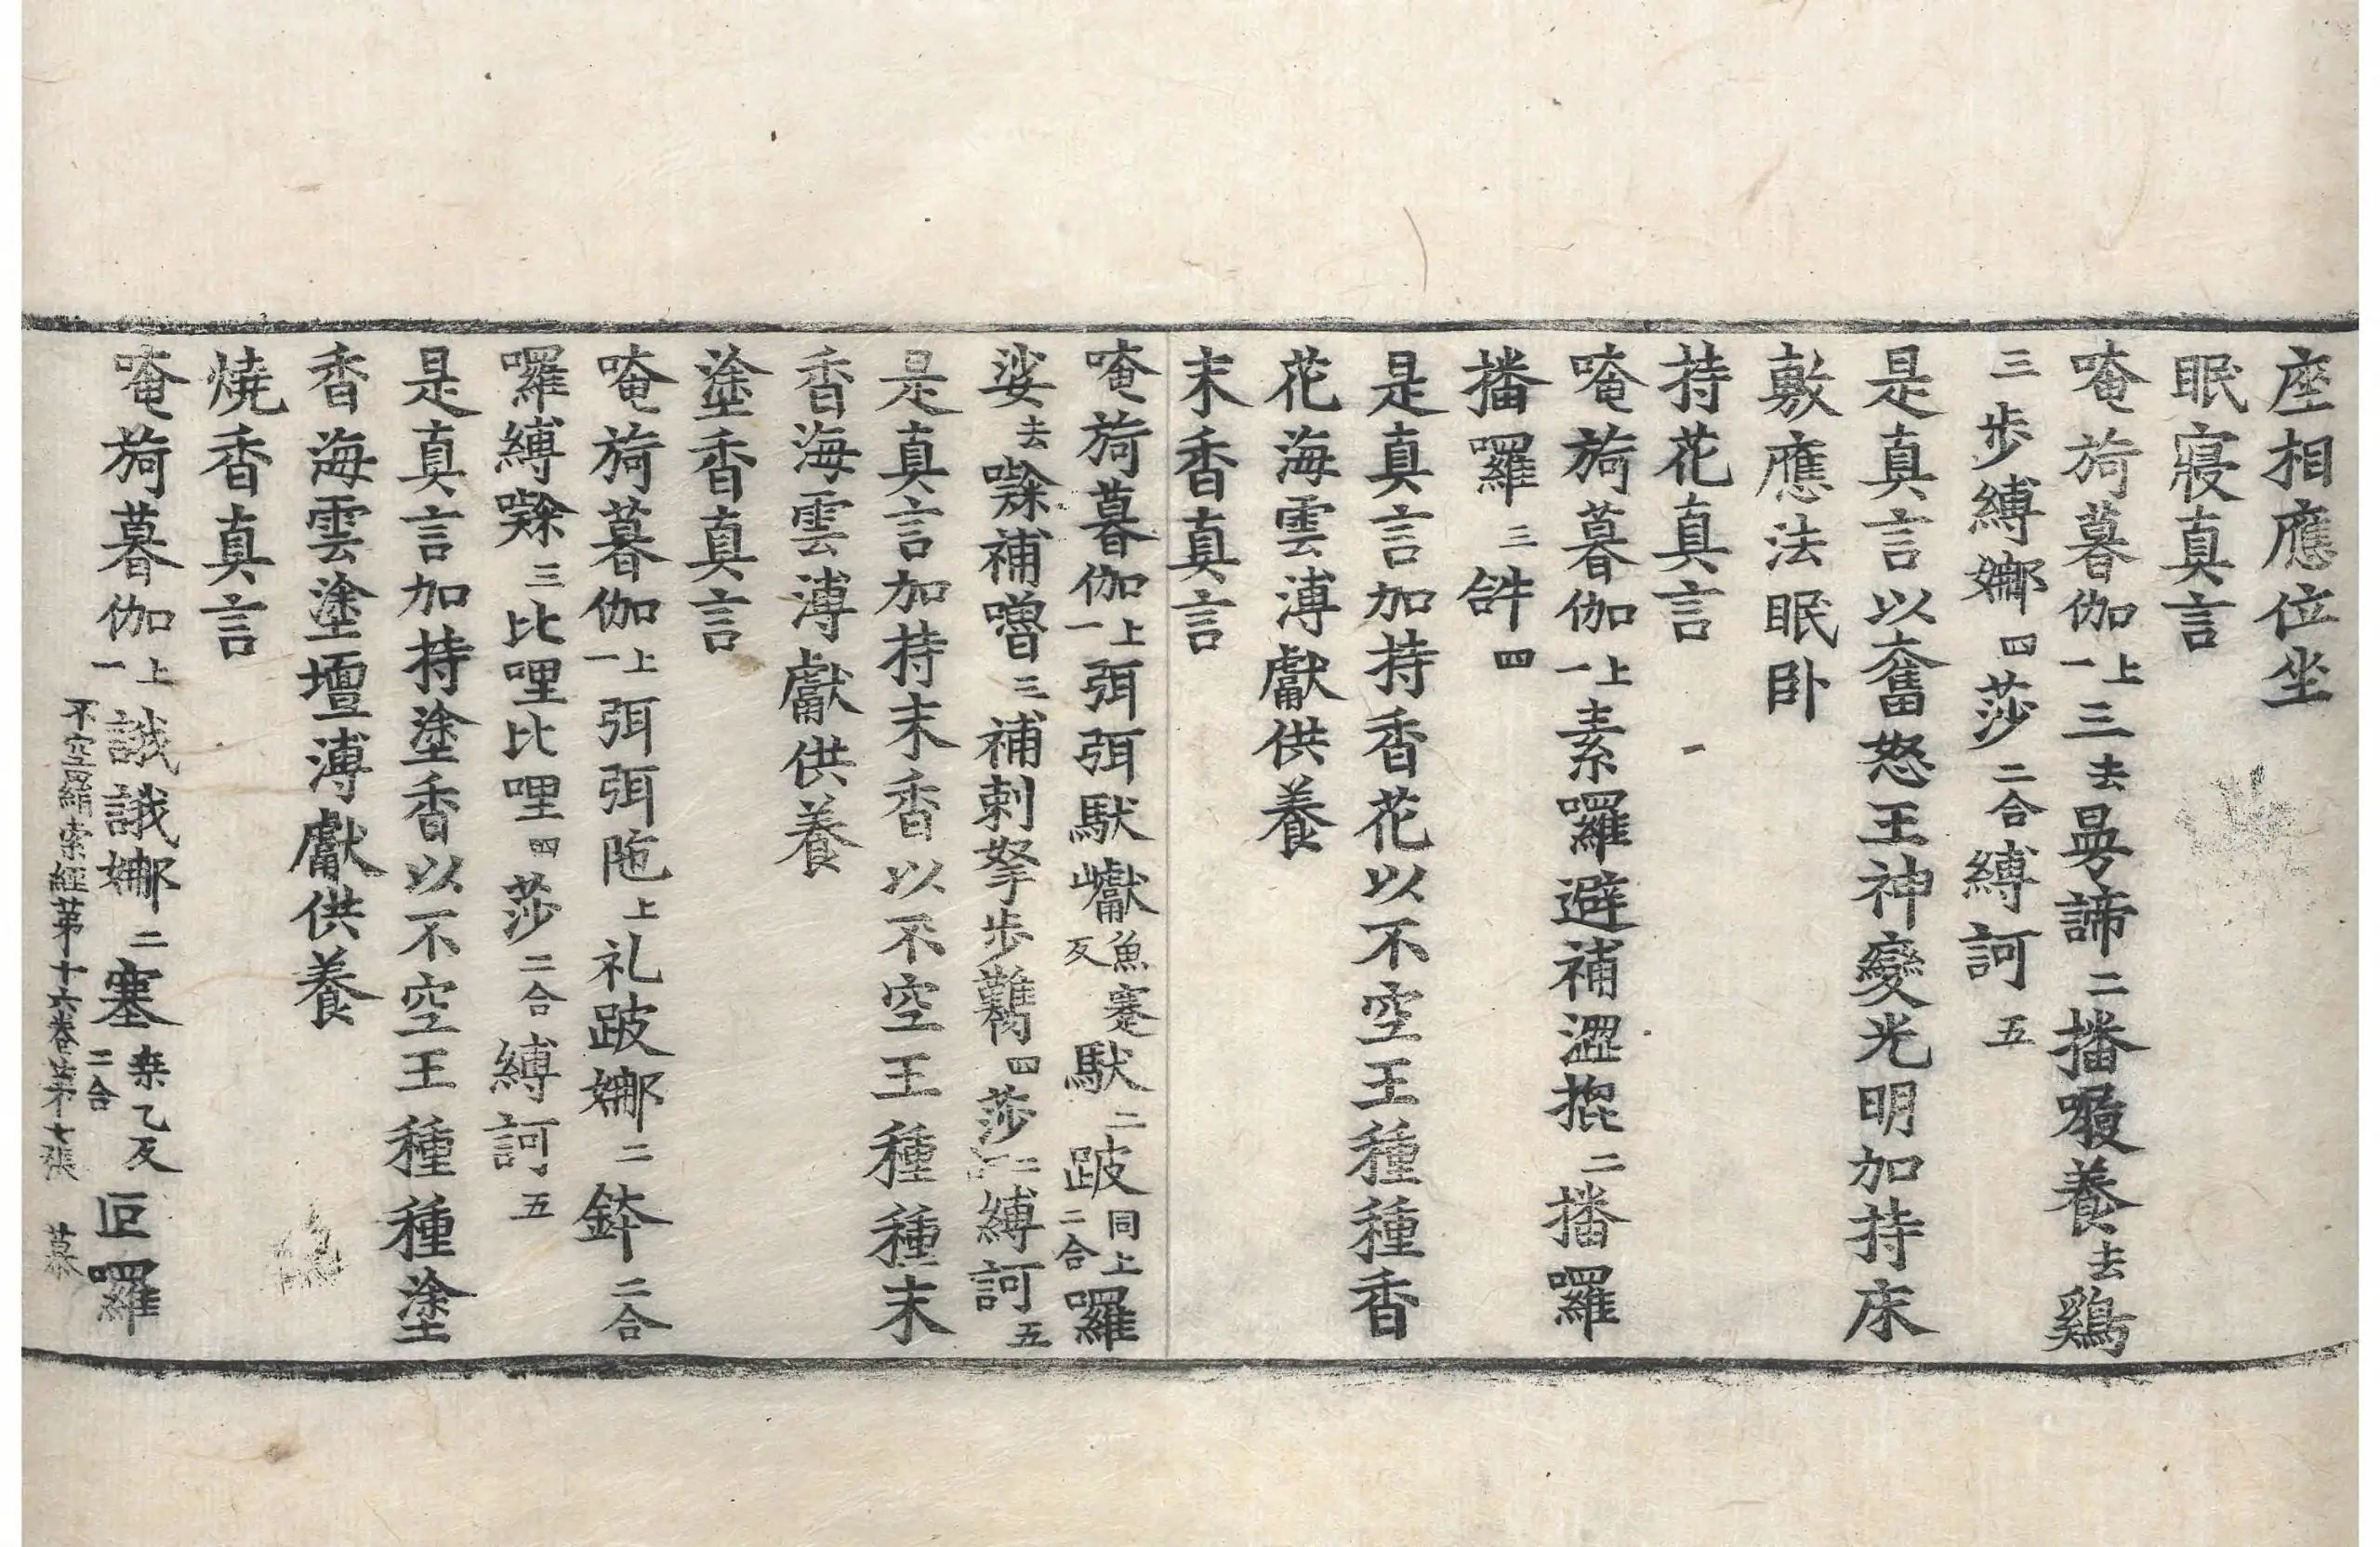 座相應位坐
眠寢真言
唵旖暮伽上一三去曼諦二播㗚養去鷄
三步縛娜四莎二合縛訶五
是真言以奮怒王神變光明加持床
敷應法眠卧
持花真言
唵旖暮伽上一素囉避補澀㨪二播囉
播囉三𤙖四
是真言加持香花以不空王種種香
花海雲溥獻供養
末香真言
唵旖暮伽上一弭弭馱巘魚蹇反馱二跛同上二合囉
娑去㘑補嚕三補剌拏步鞴四莎二縛訶五
是真言加持末香以不空王種種末
香海雲溥獻供養
塗香真言
唵旖暮伽上一弭弭陁上礼跛娜二鉢二合
囉縛㘑三比哩比哩四莎二合縛訶五
是真言加持塗香以不空王種種塗
香海雲塗壇溥獻供養
燒香真言
唵旖暮伽上一誐誐娜二塞桒乙反二合叵囉
不空羂索經苐十六卷第七張 慕